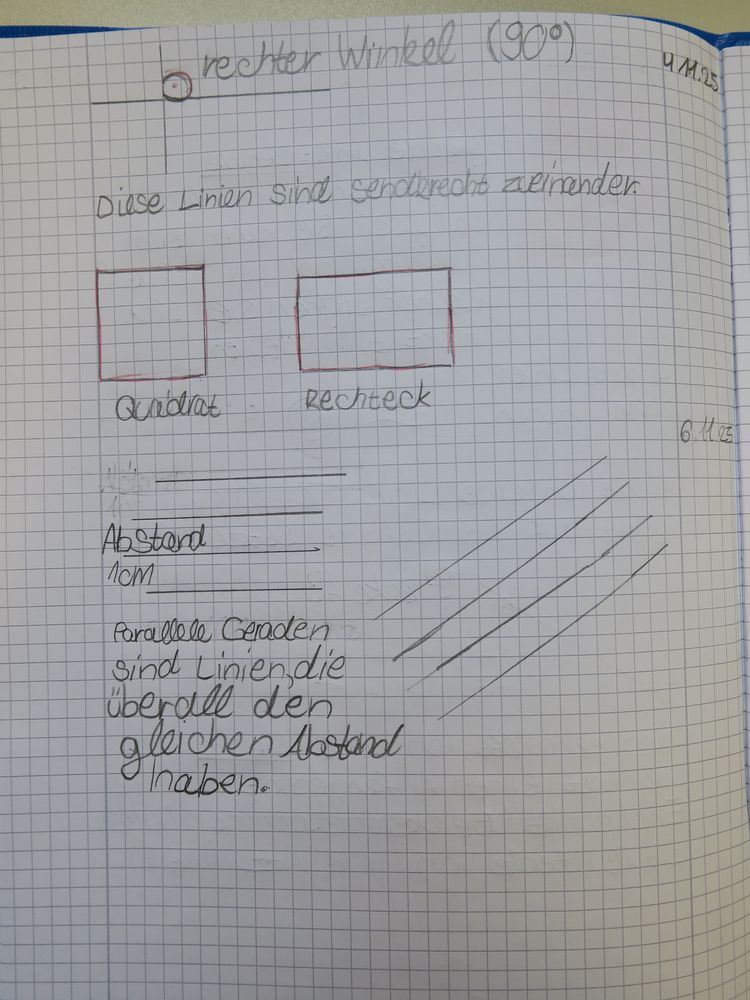 rechter Winkel (90°)
4.11.25
Diese Linien sind senderecht zueinander.
Quadrat
Rechteck
6.11.25
Abstand
1cm
Parallele Geraden
sind Linien, die
überall den
gleichen Abstand
haben.